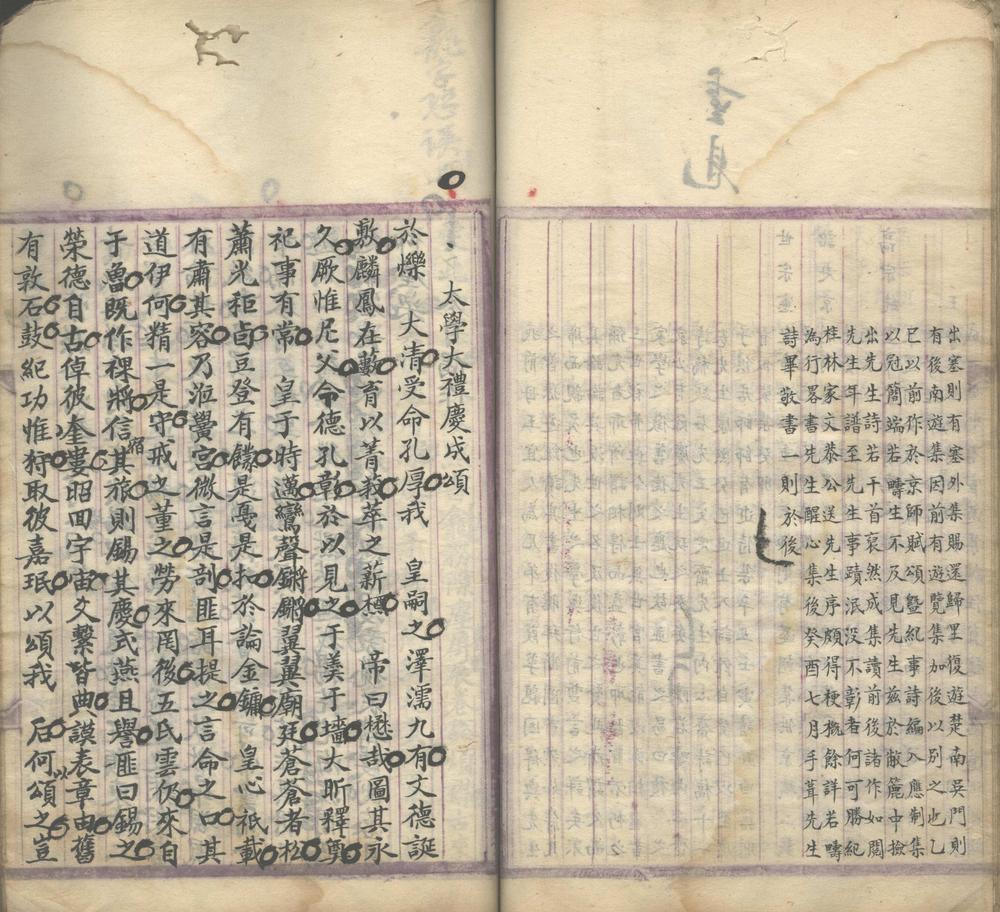 出塞則有塞外集賜還歸里復遊楚南吳門則
有後南遊集因前有遊覽集加後以別之也乙
巳以前作於京師賦頌曁紀事詩編入應制集
以冠簡端若疇生不及見先生茲於敝簏中撿
出先生詩若干首裒然成集讀前後諸作如閱
先生年譜至先生事蹟泯没不彰者何可勝紀
桂林家文恭公送先生序頗得梗槪餘詳若疇
為行畧書書先生醒心集後癸酉七月手葺先生
詩畢敬書一則於後
太學大禮慶成頌
於爍 大清受命孔厚我 皇嗣之澤濡九有文德誕
敷麟鳳在藪育以菁莪萃之薪槱 帝曰懋哉圖其永
久厥惟尼父令德孔彰於以見之于羹于墻大昕釋奠
祀事有常 皇于時邁鸞聲鏘鏘翼翼廟廷蒼蒼者松
蕭光秬卣豆登有饛是戛是擊於論金鏞 皇心祇載
有肅其容乃涖黌宮微言是剖匪耳提之言命之口其
道伊何精一是守戒之董之勞來罔後五氏雲仍來自
于魯既作祼將信其旅則錫其慶式燕且譽匪曰錫之
榮德自古倬彼奎婁昭回宇宙文繫皆曲謨表章由舊
有敦石鼓紀功惟狩取彼嘉珉以頌我 后何頌之豈